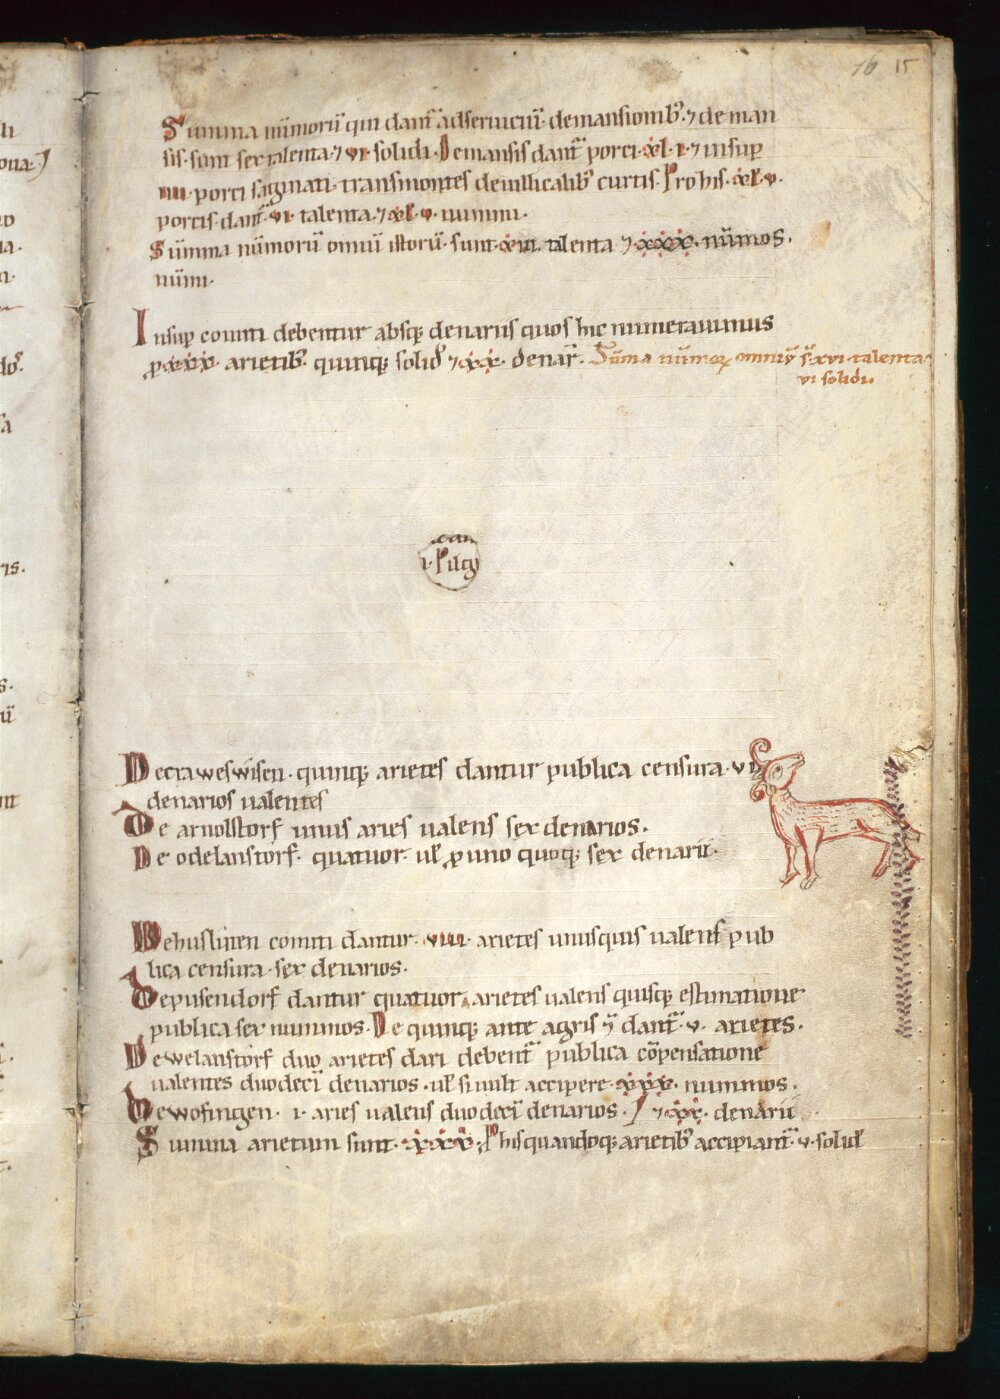 76 15
Summa nūmorū qui dant᷑ ad seruiciū· de mansionib᷒· ⁊ de man
sis· sunt sex talenta· ⁊ vi· solidi· De mansis dant᷑ porci· xl· i· ⁊ insup̄
iiii· porci saginati· transmontes de uillicalib᷒ curtis· Pro his· xl· v·
porcis· dant᷑· vi· talenta· ⁊ xl· v· nummi·
Summa nūmorū omniū istorū· sunt· xvi· talenta ⁊ xxx· nūmos·
nūmi·
Insup̄ comiti debentur absq; denariis quos hic numerauimus
ꝓ xxx· arietib᷒· quinq; solid̄ ⁊ xx· denar̄· Sūma nūmoꝝ omniū s̄· xvi· talenta·
vi solidi·
i· Pūcg
De crawes wisen· quinq; arietes dantur publica censura· vi
denarios ualentes
De arnolstorf unus aries ualens sex denarios·
De odelanstorf· quatuor· ul̄ ꝓ uno quoq; sex denarii·
De husliten comiti dantur· viii· arietes unusquis ualens pub
lica censura· sex denarios·
De pusendorf dantur quatuor arietes ualens quisq; estimatione
publica sex nummos· De quinq; ante agris dant᷑· v· arietes·
De welanstorf duo arietes dari debent᷑ publica cōpensatione
ualentes duodecī denarios· ul̄ si uult accipere· xxx· nummos·
De wofingen· i· aries ualens duodecī denarios· ⁊ xx· denarii
Summa arietum sunt· xxx· P his quandoq; arietib᷒ accipiant᷑· v· solid̄